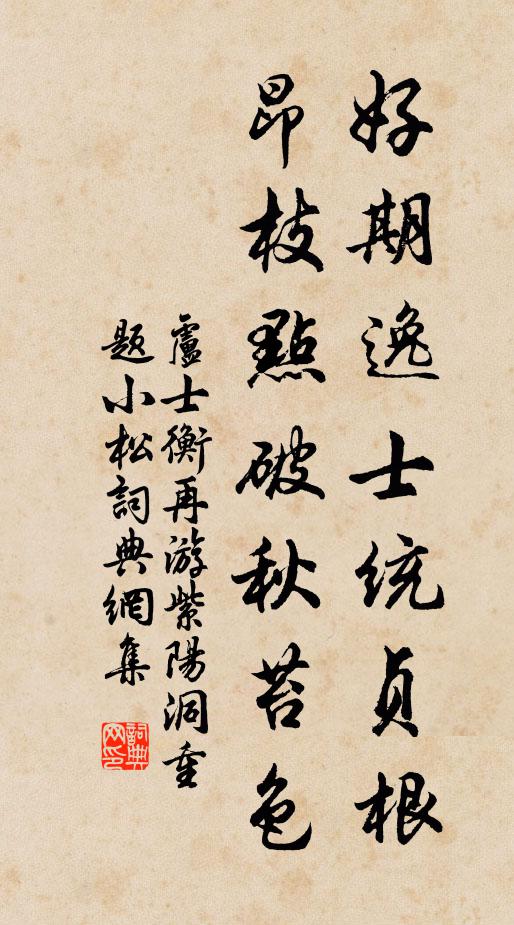 好期逸士統貞根
昂枝點破秋苔色
盧士衡再游紫陽洞重
題小松詞典網集
詞典网印